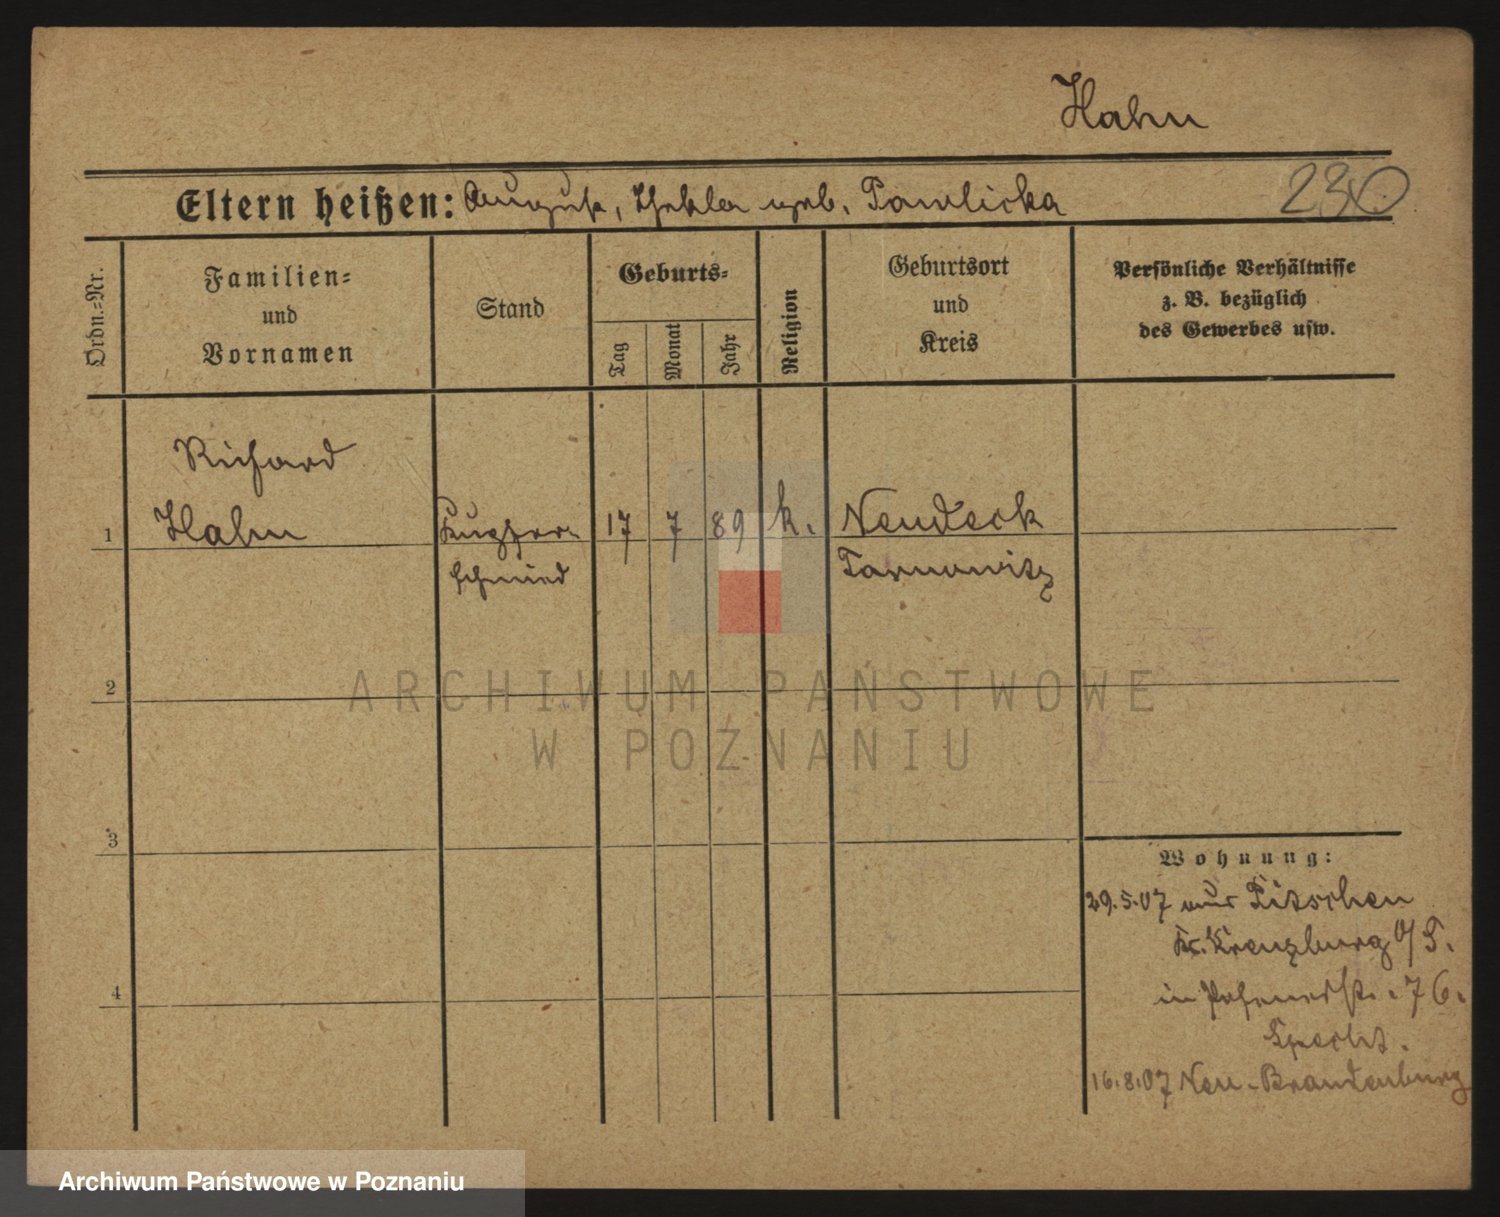 Hahn
230
Eltern heißen: August, Thekla geb. Pawlicka
Ordn.-Nr.
Familien-
und
Vornamen
Stand
Geburts-
Tag
Monat
Jahr
Religion
Geburtsort
und
Kreis
Persönliche Verhältnisse
z. B. bezüglich
des Gewerbes usw.
Richard
1 Hahn Kupfer- 17 7 89 k. Neudeck
schmied Tarnowitz
2
ARCHIWUM PAŃSTWOWE
W POZNANIU
3
Wohnung:
29.5.07 aus Pitschen
Kr. Kreuzburg O/S.
4
in Posenerstr. 76.
Specht.
16.8.07 Neu-Brandenburg
Archiwum Państwowe w Poznaniu